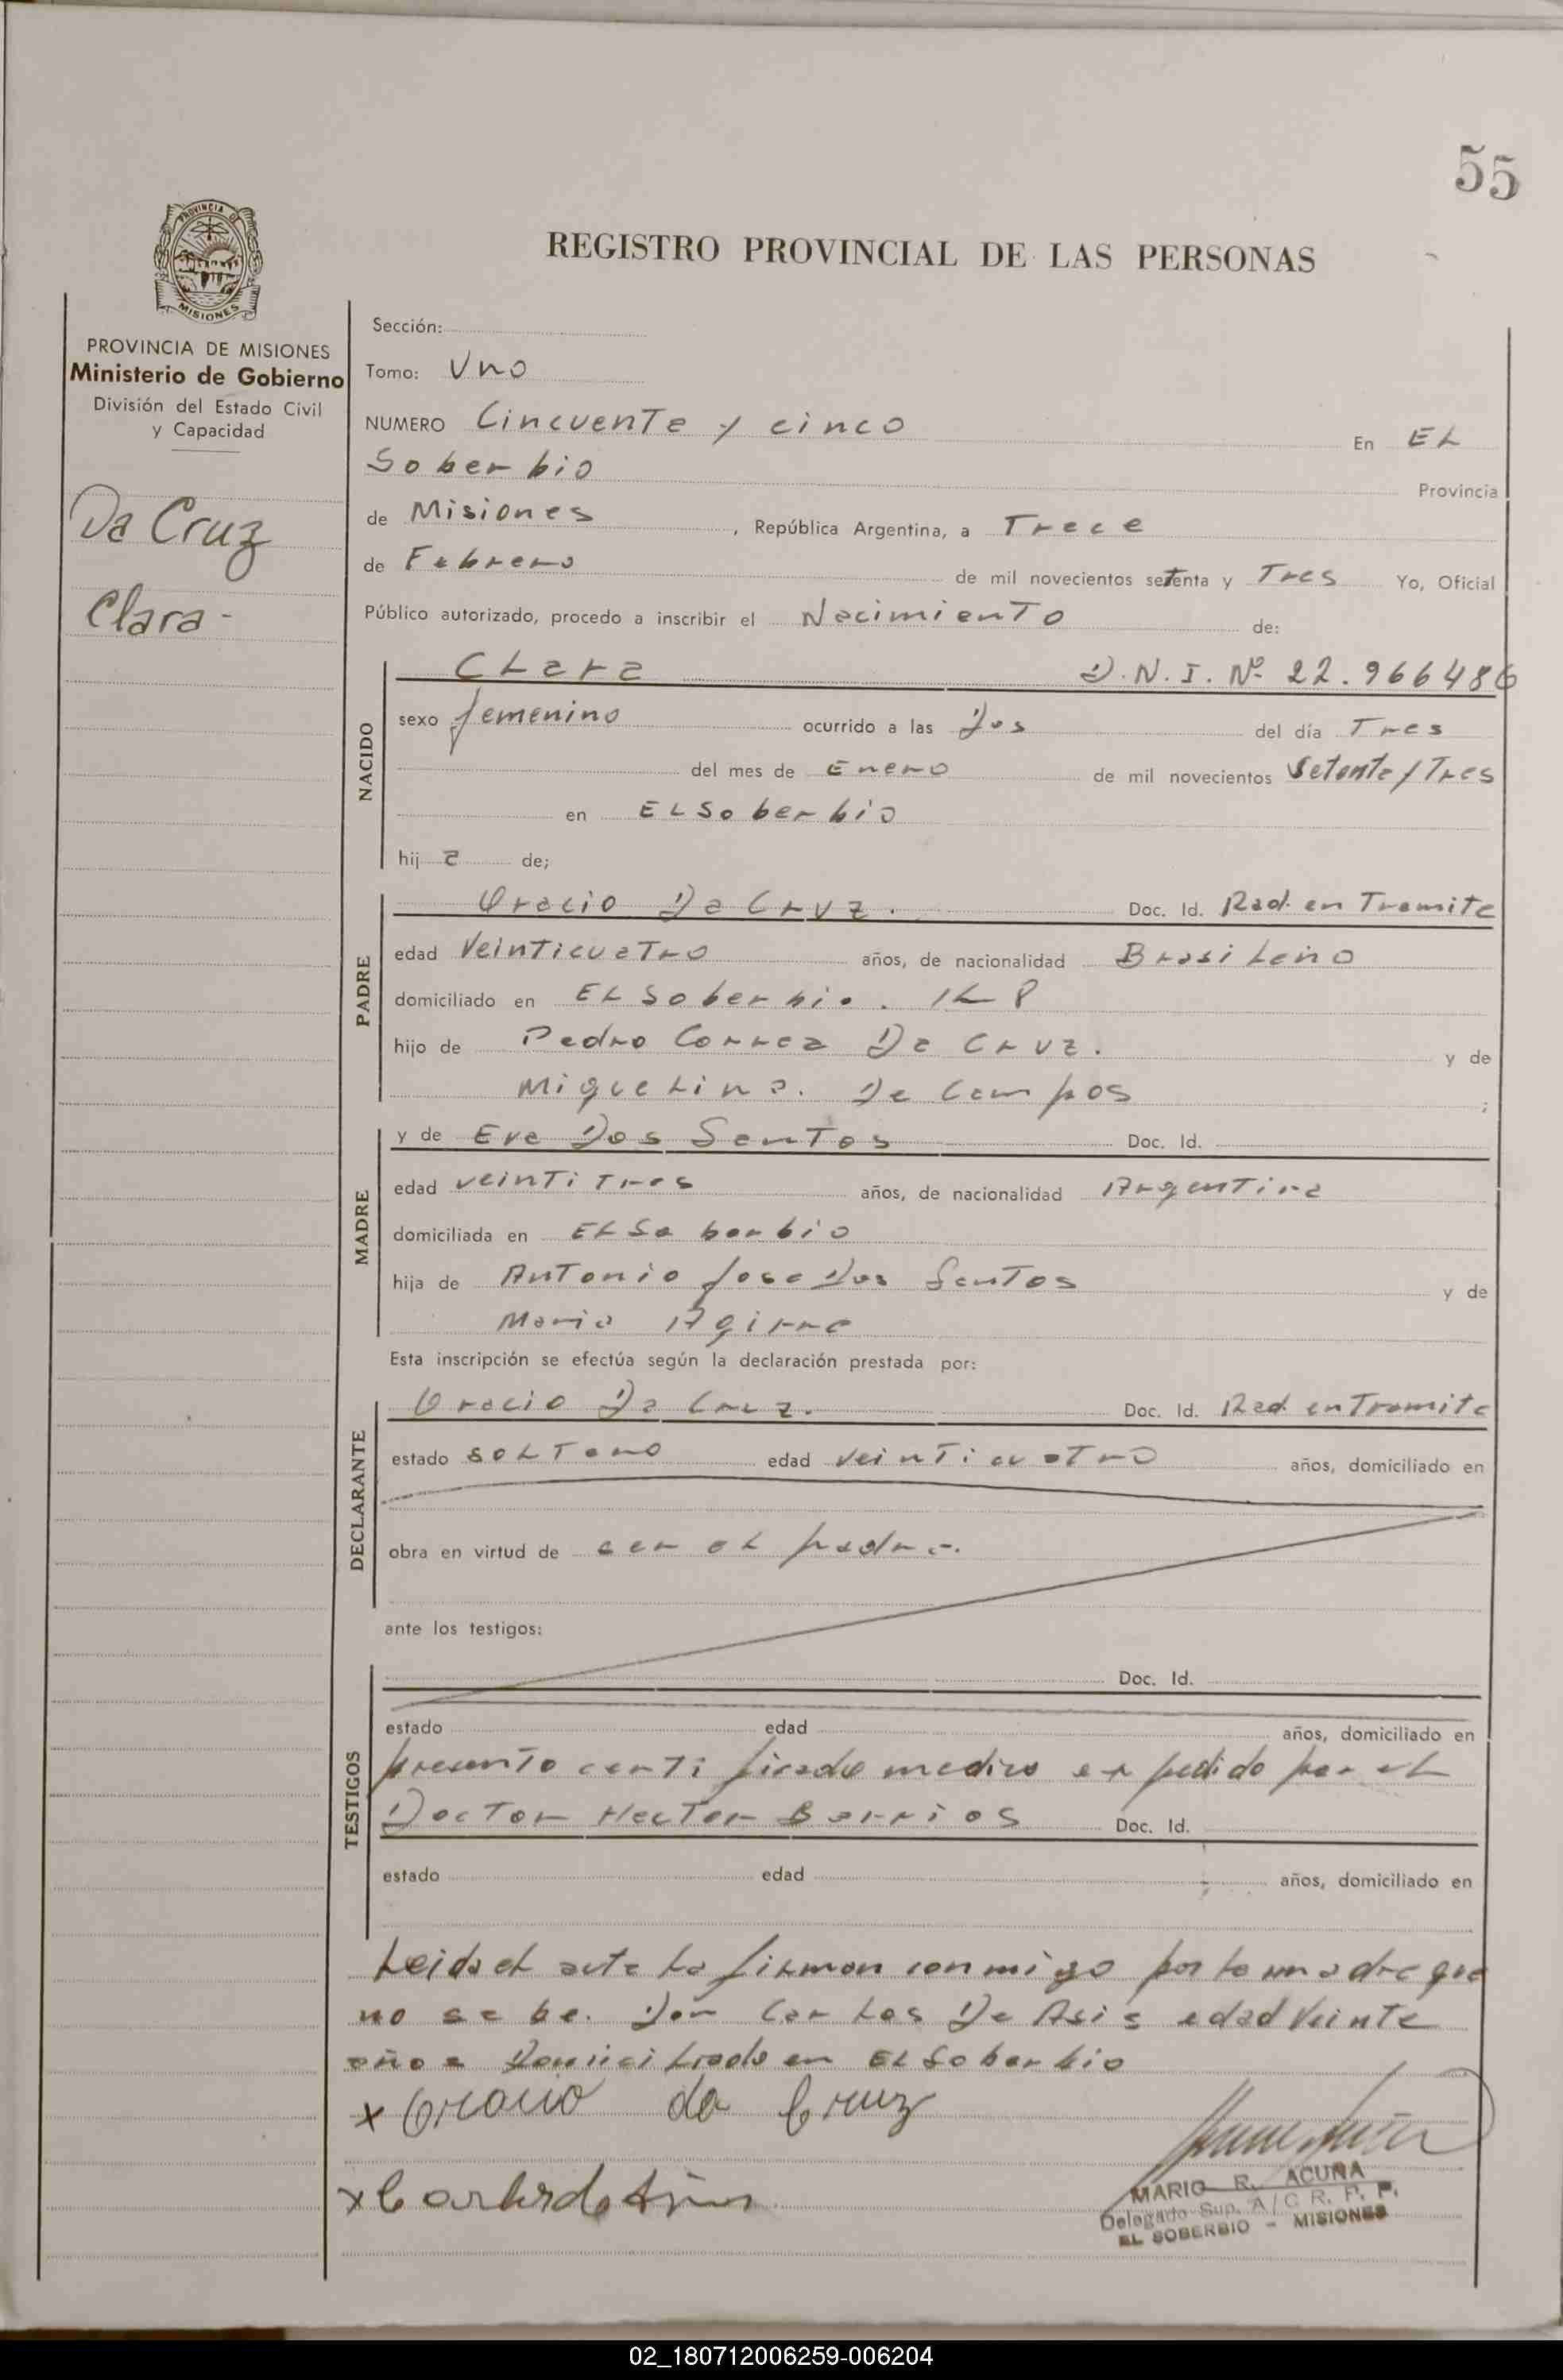 55
PROVINCIA DE
MISIONES
REGISTRO PROVINCIAL DE LAS PERSONAS
PROVINCIA DE MISIONES
Ministerio de Gobierno
División del Estado Civil
y Capacidad
Da Cruz
Clara -
Sección:
Tomo: Uno
NUMERO Cincuente y cinco En EL
Soberbio Provincia
de Misiones, República Argentina, a Trece
de Febrero de mil novecientos setenta y Tres Yo, Oficial
Público autorizado, procedo a inscribir el Nacimiento de:
NACIDO
Clara D.N.I. Nº 22.966486
sexo femenino ocurrido a las Dos del día Tres
del mes de Enero de mil novecientos Setente/Tres
en EL Soberbio
hij a de;
PADRE
Oracio Da Cruz. Doc. Id. Rad. en Tramite
edad Veinticuatro años, de nacionalidad Brasileño
domiciliado en EL Soberbio. K 8
hijo de Pedro Correa Da Cruz. y de
Miguelina. De Campos ;
MADRE
y de Eva Dos Santos Doc. Id.
edad veintitres años, de nacionalidad Argentina
domiciliada en EL Soberbio
hija de Antonio Jose Dos Santos y de
Maria Agirre
Esta inscripción se efectúa según la declaración prestada por:
DECLARANTE
Oracio Da Cruz. Doc. Id. Rad. en Tramite
estado soltero edad veinticuatro años, domiciliado en
obra en virtud de ser el padre.
ante los testigos:
TESTIGOS
Doc. Id.
estado edad años, domiciliado en
presento certificado medico expedido por el
Doctor Hector Barrios Doc. Id.
estado edad años, domiciliado en
Leida el acta la firman conmigo por la madre que
no sabe. Don Carlos De Asis edad Veinte
años Domiciliado en EL Soberbio
x Oracio da Cruz
x Carlos de Asis
MARIO R. ACUÑA
Delegado Sup. A/C R. P. P.
EL SOBERBIO - MISIONES
02_180712006259-006204